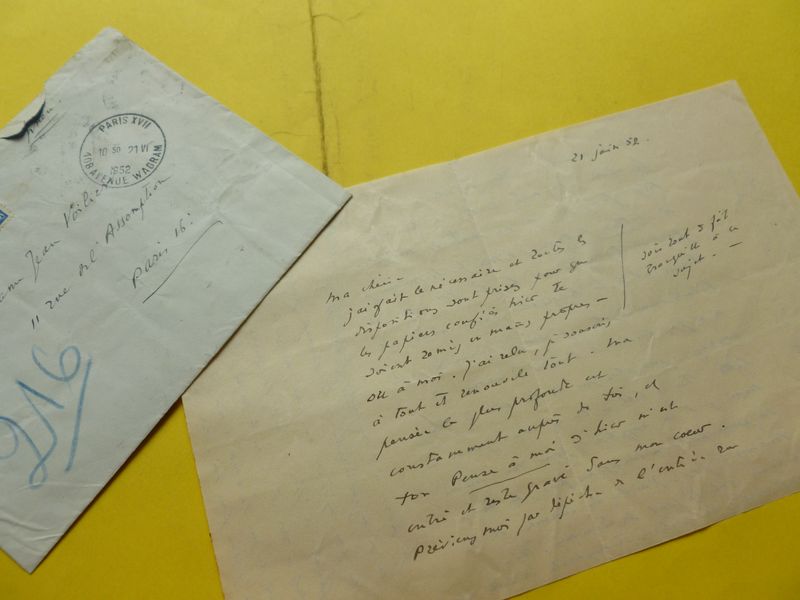 PARIS XVII
10 30 21 VI
1952
108 AVENUE WAGRAM
Jean Voilier
11 rue de l'Assomption
Paris 16e
216
21 juin 52.
ma chérie
j'ai fait le nécessaire et toutes les
dispositions sont prises pour que
les papiers confiés hier te
soient remis en mains propres –
ou à moi. J'ai relu, je
à tout et renouvelle tout. Ma
pensée la plus profonde est
constamment auprès de toi, et
ton Pense à moi d'hier m'est
entré et reste gravé dans mon coeur.
Préviens moi par dépêche de l'entrée
sois tout à fait
tranquille à ce
sujet. –